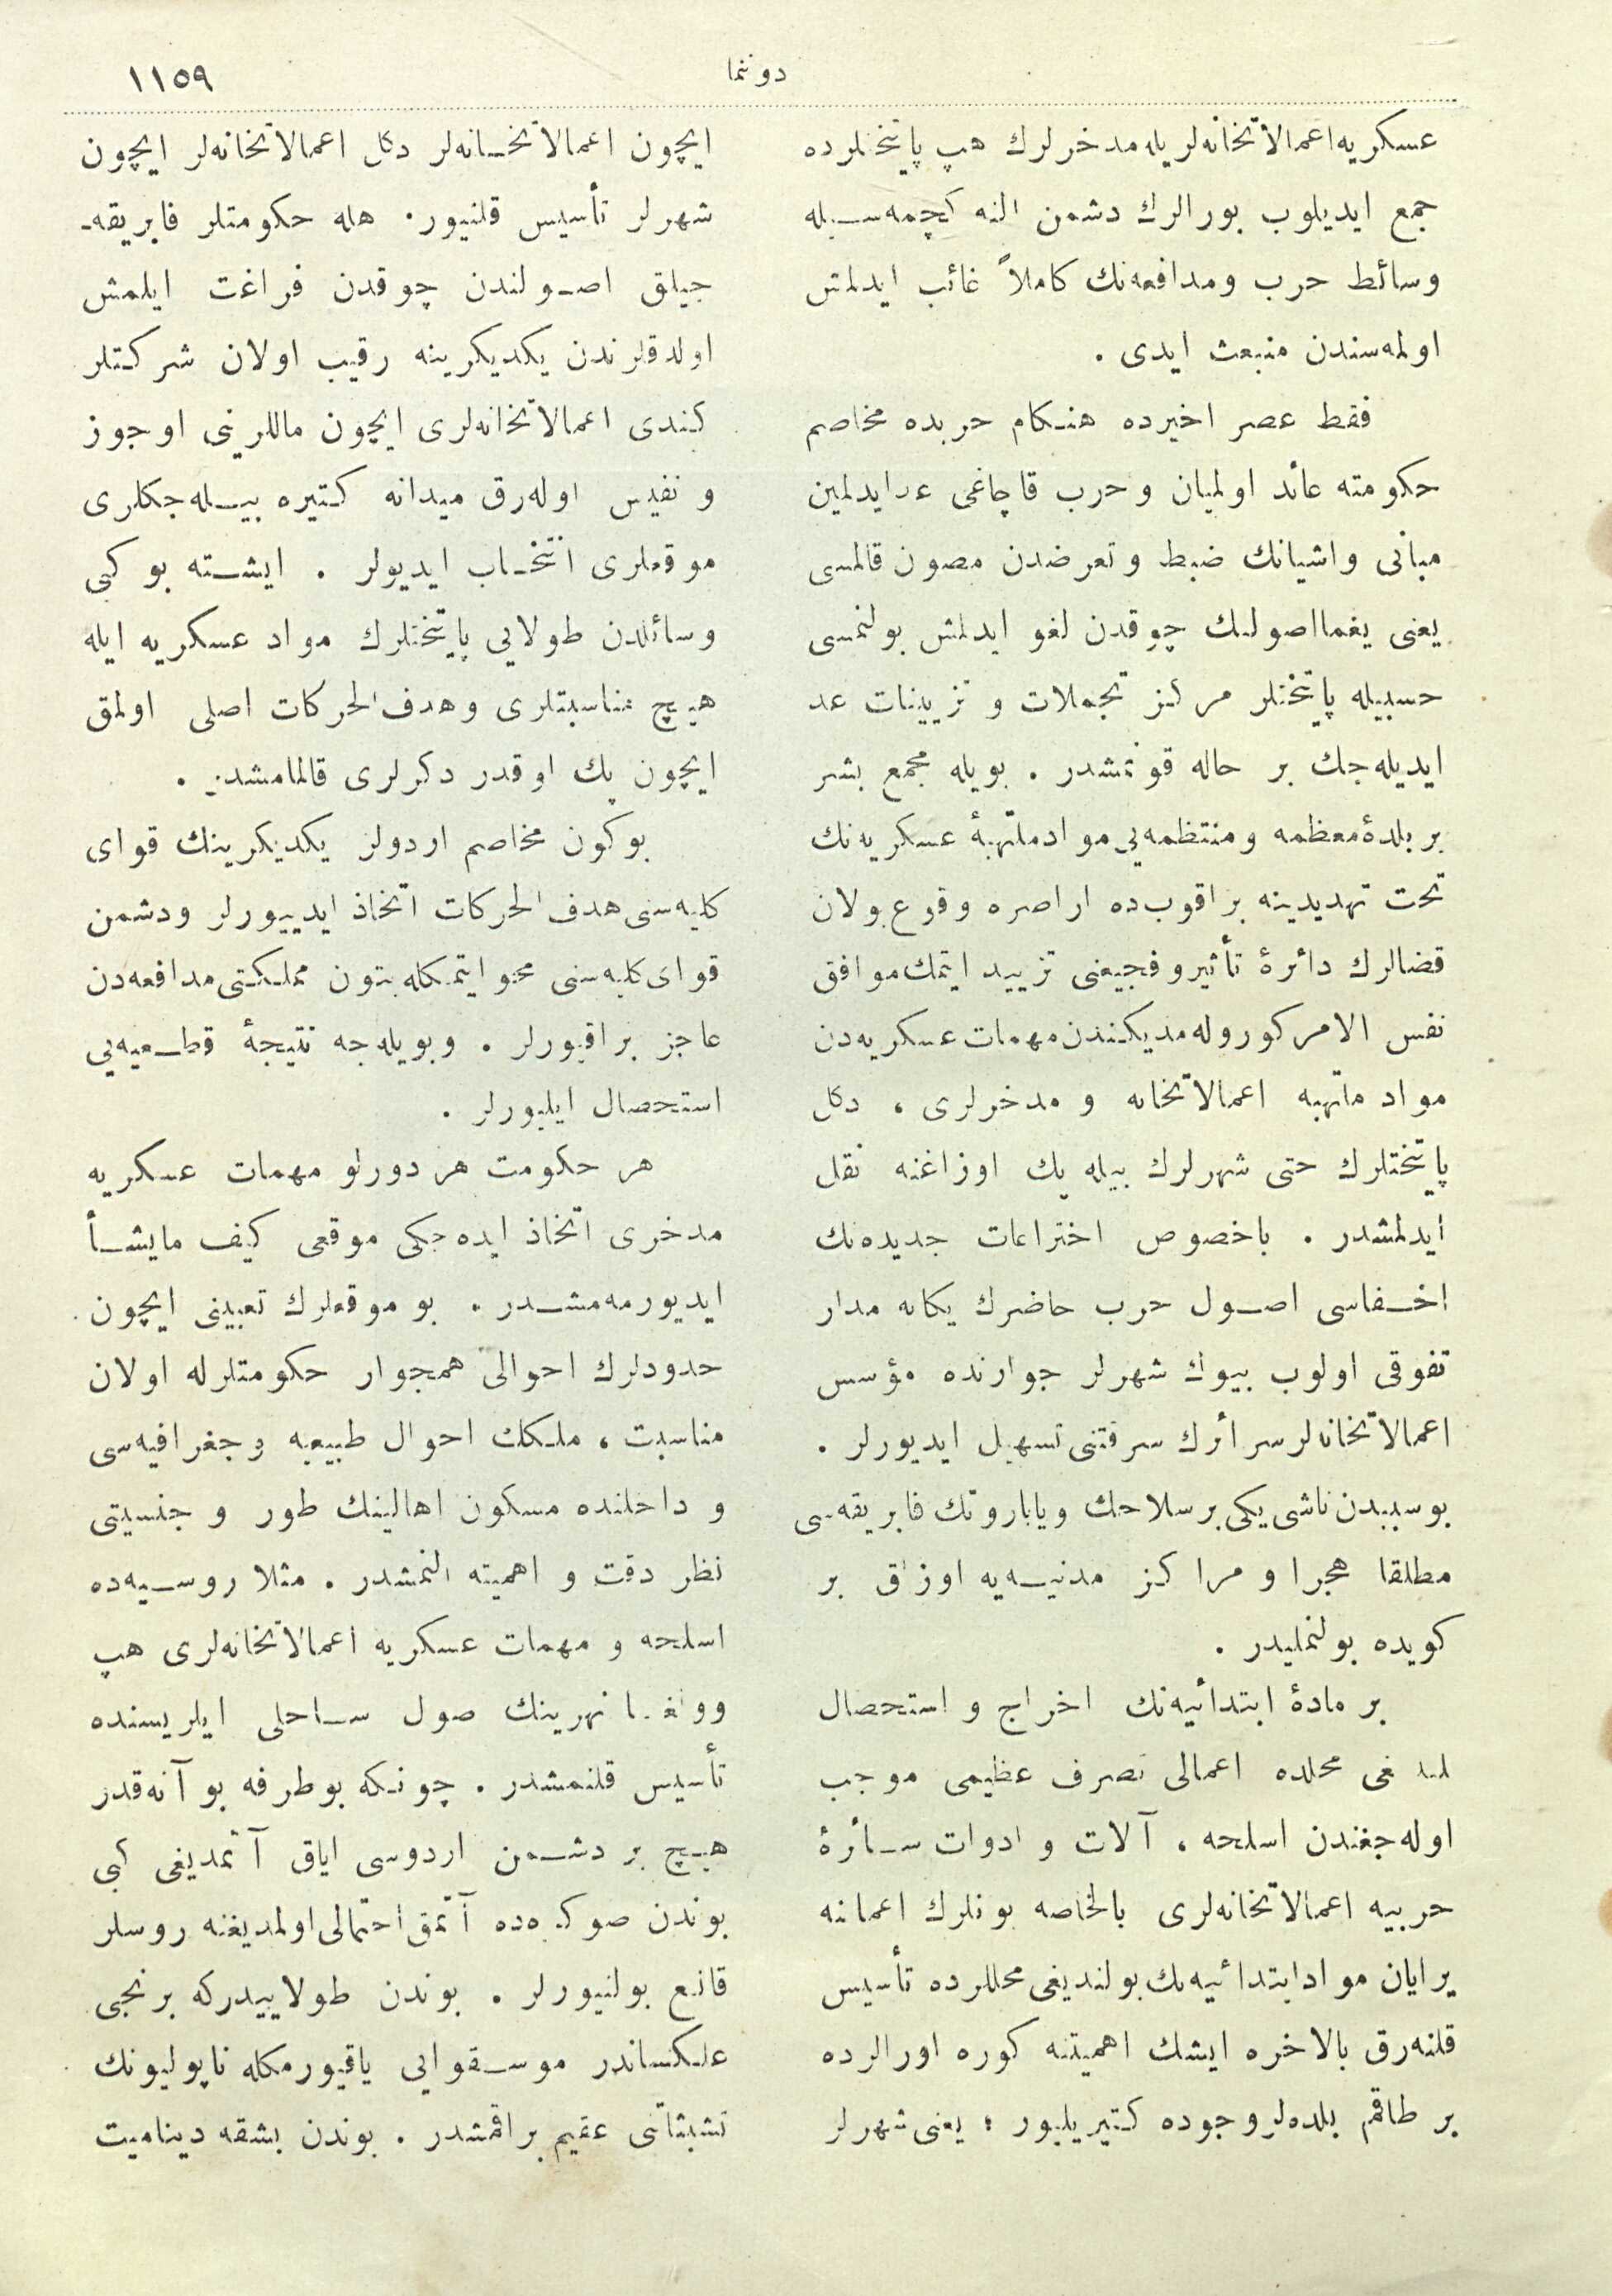 دوننما
١١٥٩
عسكريه اعمالاتخانه‌لريله مدخرلرك هپ پايتختلرده
جمع ايديلوب بورالرك دشمن النه كچمه‌سيله
وسائط حرب ومدافعه‌نك كاملاً غائب ايدلمش
اولمه‌سندن منبعث ايدى .
فقط عصر اخيرده هنكام حربده مخاصم
حكومته عائد اولميان وحرب قاچاغى عد ايدلمين
مبانى واشيانك ضبط وتعرضدن مصون قالمسى
يعنى يغما اصولنك چوقدن لغو ايدلمش بولنمسى
حسبيله پايتختلر مركز تجملات و تزيينات عد
ايديله‌جك بر حاله قونمشدر . بويله مجمع بشر
بر بلدهٔ معظمه ومنتظمه‌يى مواد ملتهبهٔ عسكريه‌نك
تحت تهديدينه براقوب‌ده اراصره وقوع بولان
قضالرك دائرهٔ تأثير و فجيعنى تزييد ايتمك موافق
نفس الامر كوروله‌مديكندن مهمات عسكريه‌دن
مواد ملتهبه اعمالاتخانه و مدخرلرى ، دكل
پايتختلرك حتى شهرلرك بيله پك اوزاغنه نقل
ايدلمشدر . باخصوص اختراعات جديده‌نك
اخفاسى اصول حرب حاضرك يكانه مدار
تفوقى اولوب بيوك شهرلر جوارنده مؤسس
اعمالاتخانه‌لر سرائرك سرقتنى تسهيل ايديورلر .
بو سببدن ناشى يكى بر سلاحك ويا باروتك فابريقه‌سى
مطلقا هجرا و مراكز مدنيه‌يه اوزاق بر
كويده بولنمليدر .
بر مادهٔ ابتدائيه‌نك اخراج و استحصال
محلده اعمالى تصرف عظيمى موجب
اوله‌جغندن اسلحه ، آلات و ادوات سائرهٔ
حربيه اعمالاتخانه‌لرى بالخاصه بونلرك اعمالنه
يرايان مواد ابتدائيه‌نك بولنديغى محللرده تأسيس
قلنه‌رق بالاخره ايشك اهميتنه كوره اورالرده
بر طاقم بلده‌لر وجوده كتيريليور ؛ يعنى شهرلر
ايچون اعمالاتخانه‌لر دكل اعمالاتخانه‌لر ايچون
شهرلر تأسيس قلنيور . هله حكومتلر فابريقه‌ـ
جيلق اصولندن چوقدن فراغت ايلمش
اولدقلرندن يكديكرينه رقيب اولان شركتلر
كندى اعمالاتخانه‌لرى ايچون ماللرينى اوجوز
و نفيس اوله‌رق ميدانه كتيره بيله‌جكلرى
موقعلرى انتخاب ايديولر . ايشته بو كبى
وسائلدن طولايى پايتختلرك مواد عسكريه ايله
هيچ مناسبتلرى وهدف الحركات اصلى اولمق
ايچون پك اوقدر دكرلرى قالمامشدر .
بوكون مخاصم اردولر يكديكرينك قواى
كليه‌سنى هدف الحركات اتخاذ ايدييورلر ودشمن
قواى كليه‌سنى محو ايتمكله بتون مملكتى مدافعه‌دن
عاجز براقيورلر . وبويله‌جه نتيجهٔ قطعيه‌يى
استحصال ايليورلر .
هر حكومت هر دورلو مهمات عسكريه
مدخرى اتخاذ ايده‌جكى موقعى كيف مايشأ
ايديورمه‌مشدر . بو موقعلرك تعيينى ايچون
حدودلرك احوالى همجوار حكومتلرله اولان
مناسبت ، ملكك احوال طبيعيه و جغرافيه‌سى
و داخلنده مسكون اهالينك طور و جنسيتى
نظر دقت و اهميته النمشدر . مثلا روسيه‌ده
اسلحه و مهمات عسكريه اعمالاتخانه‌لرى هپ
وولغا نهرينك صول ساحلى ايلريسنده
تأسيس قلنمشدر . چونكه بو طرفه بو آنه قدر
هيچ بر دشمن اردوسى اياق آتمديغى كبى
بوندن صوكره‌ده آتمق احتمالى اولمديغنه روسلر
قانع بولنيورلر . بوندن طولاييدركه برنجى
علكساندر موسقوايى ياقيورمكله ناپوليونك
تشبثاتنى عقيم براقمشدر . بوندن بشقه ديناميت